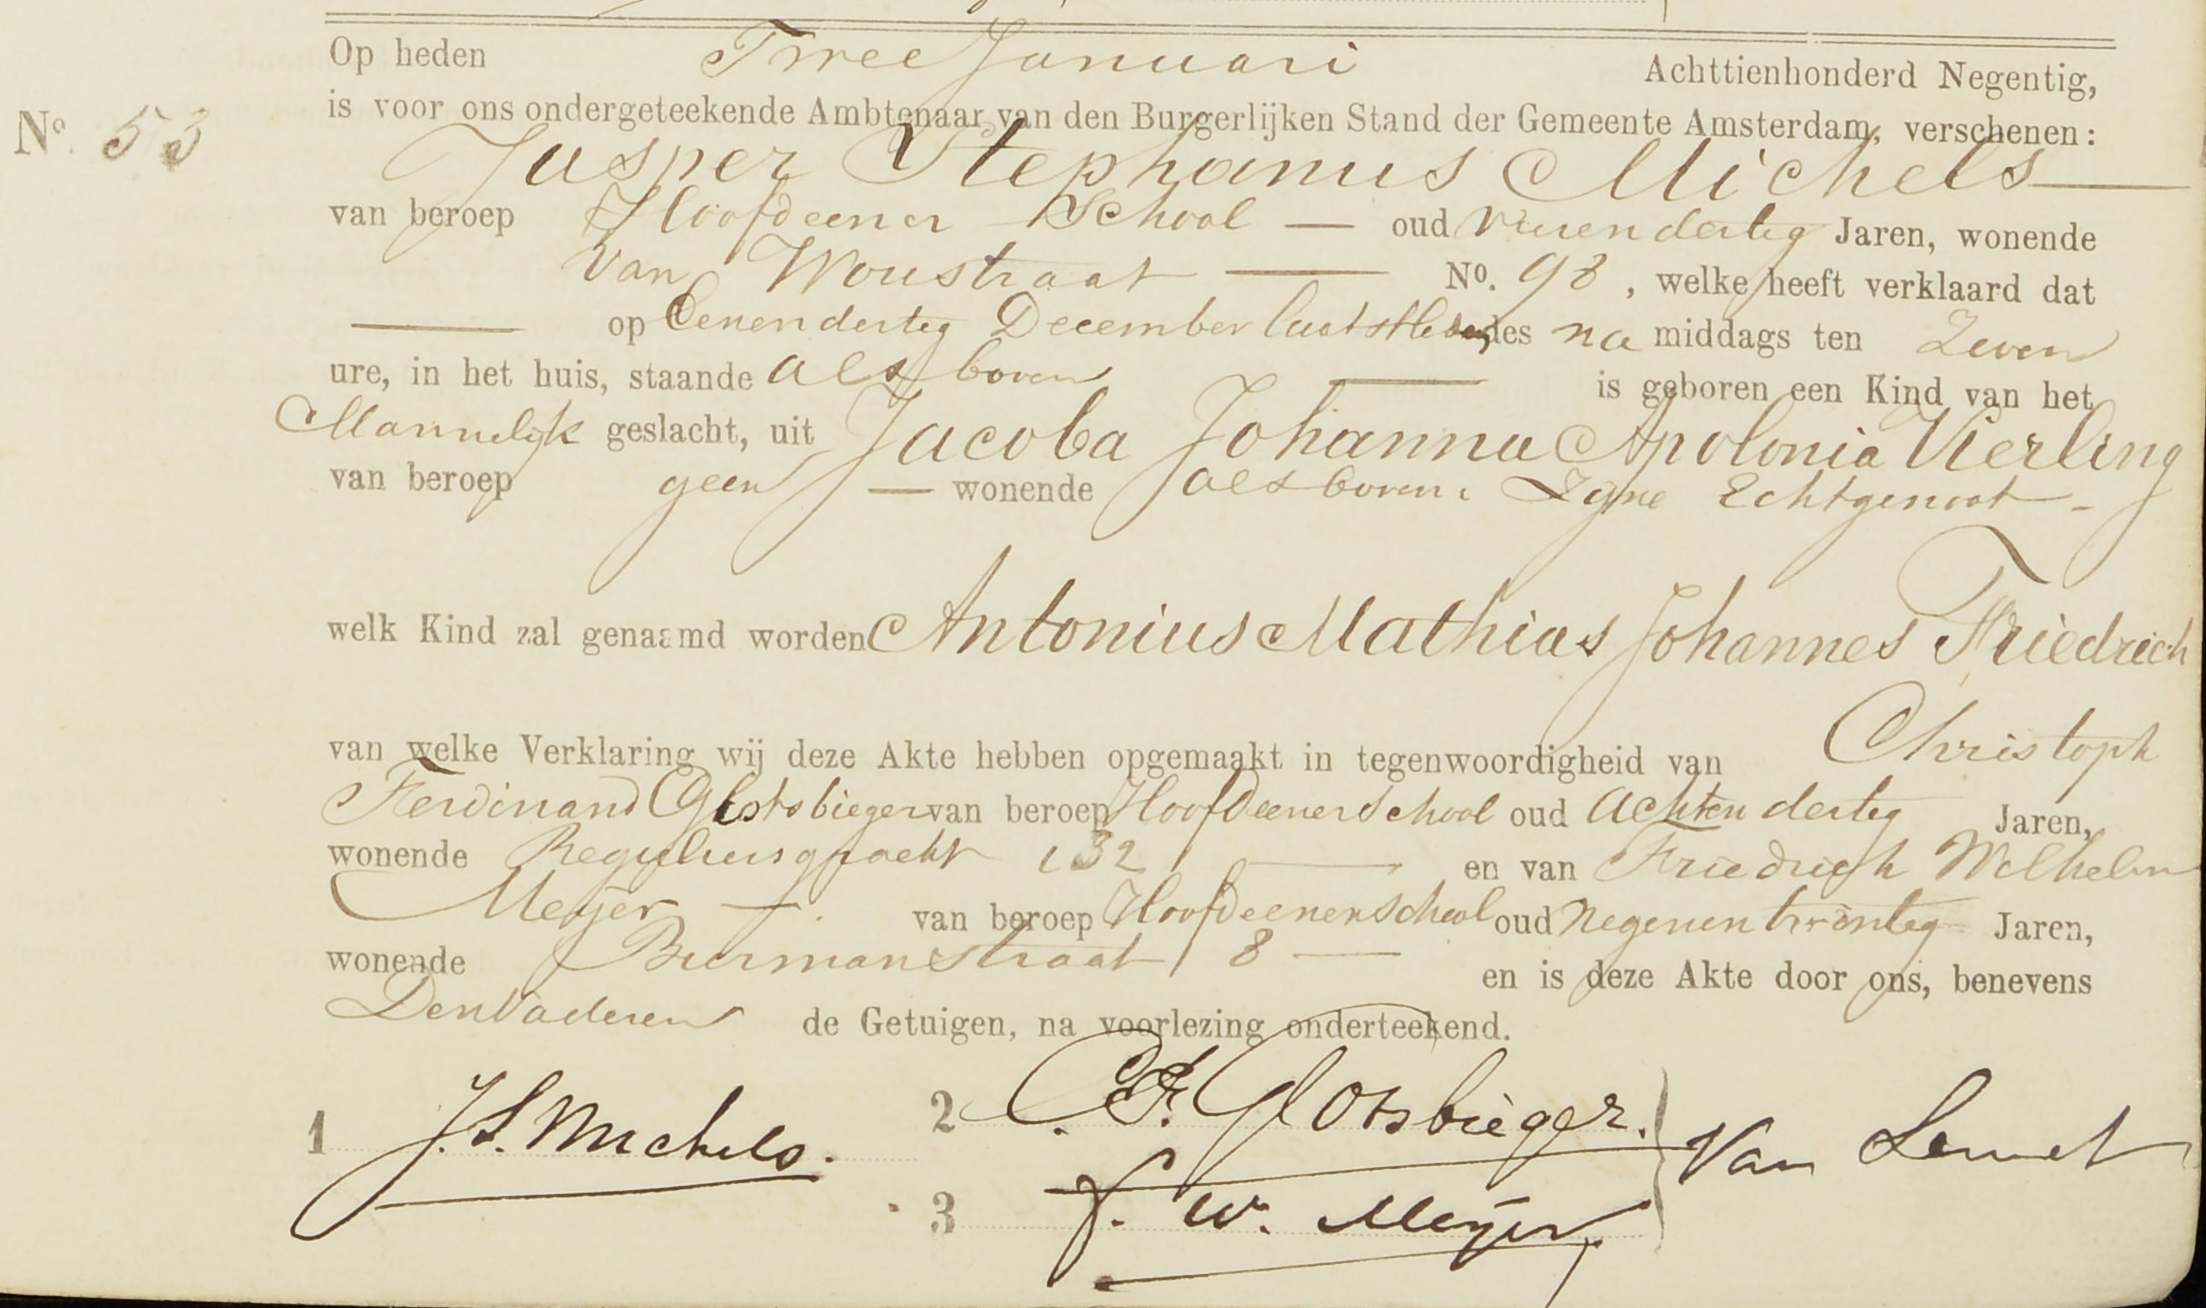 Op heden Twee Januari Achttienhonderd Negentig,
No. 53 is voor ons ondergeteekende Ambtenaar van den Burgerlijken Stand der Gemeente Amsterdam, verschenen:
Jasper Stephanus Michels
van beroep Hoofd eener School — oud vierendertig Jaren, wonende
van Woustraat — No. 98, welke heeft verklaard dat
— op Eenendertig December laatstleden des na middags ten Zeven
ure, in het huis, staande als boven — is geboren een Kind van het
Mannelijk geslacht, uit Jacoba Johanna Apolonia Vierling
van beroep geen — wonende als boven, Zyne Echtgenoot -
welk Kind zal genaamd worden Antonius Mathias Johannes Friedrich
van welke Verklaring wij deze Akte hebben opgemaakt in tegenwoordigheid van Christoph
Ferdinand Glotsbieger van beroep Hoofd eener School oud Achtendertig Jaren,
wonende Reguliersgracht 132 — en van Friedrich Wilhelm
Meijer — van beroep Hoofd eener School oud Negenentwintig Jaren,
wonende Burmanstraat 8 — en is deze Akte door ons, benevens
Den Vader en de Getuigen, na voorlezing onderteekend.
1 J. S. Michels.
2 C. F. Glotsbieger.
Van Lennet
3 F. W. Meijer